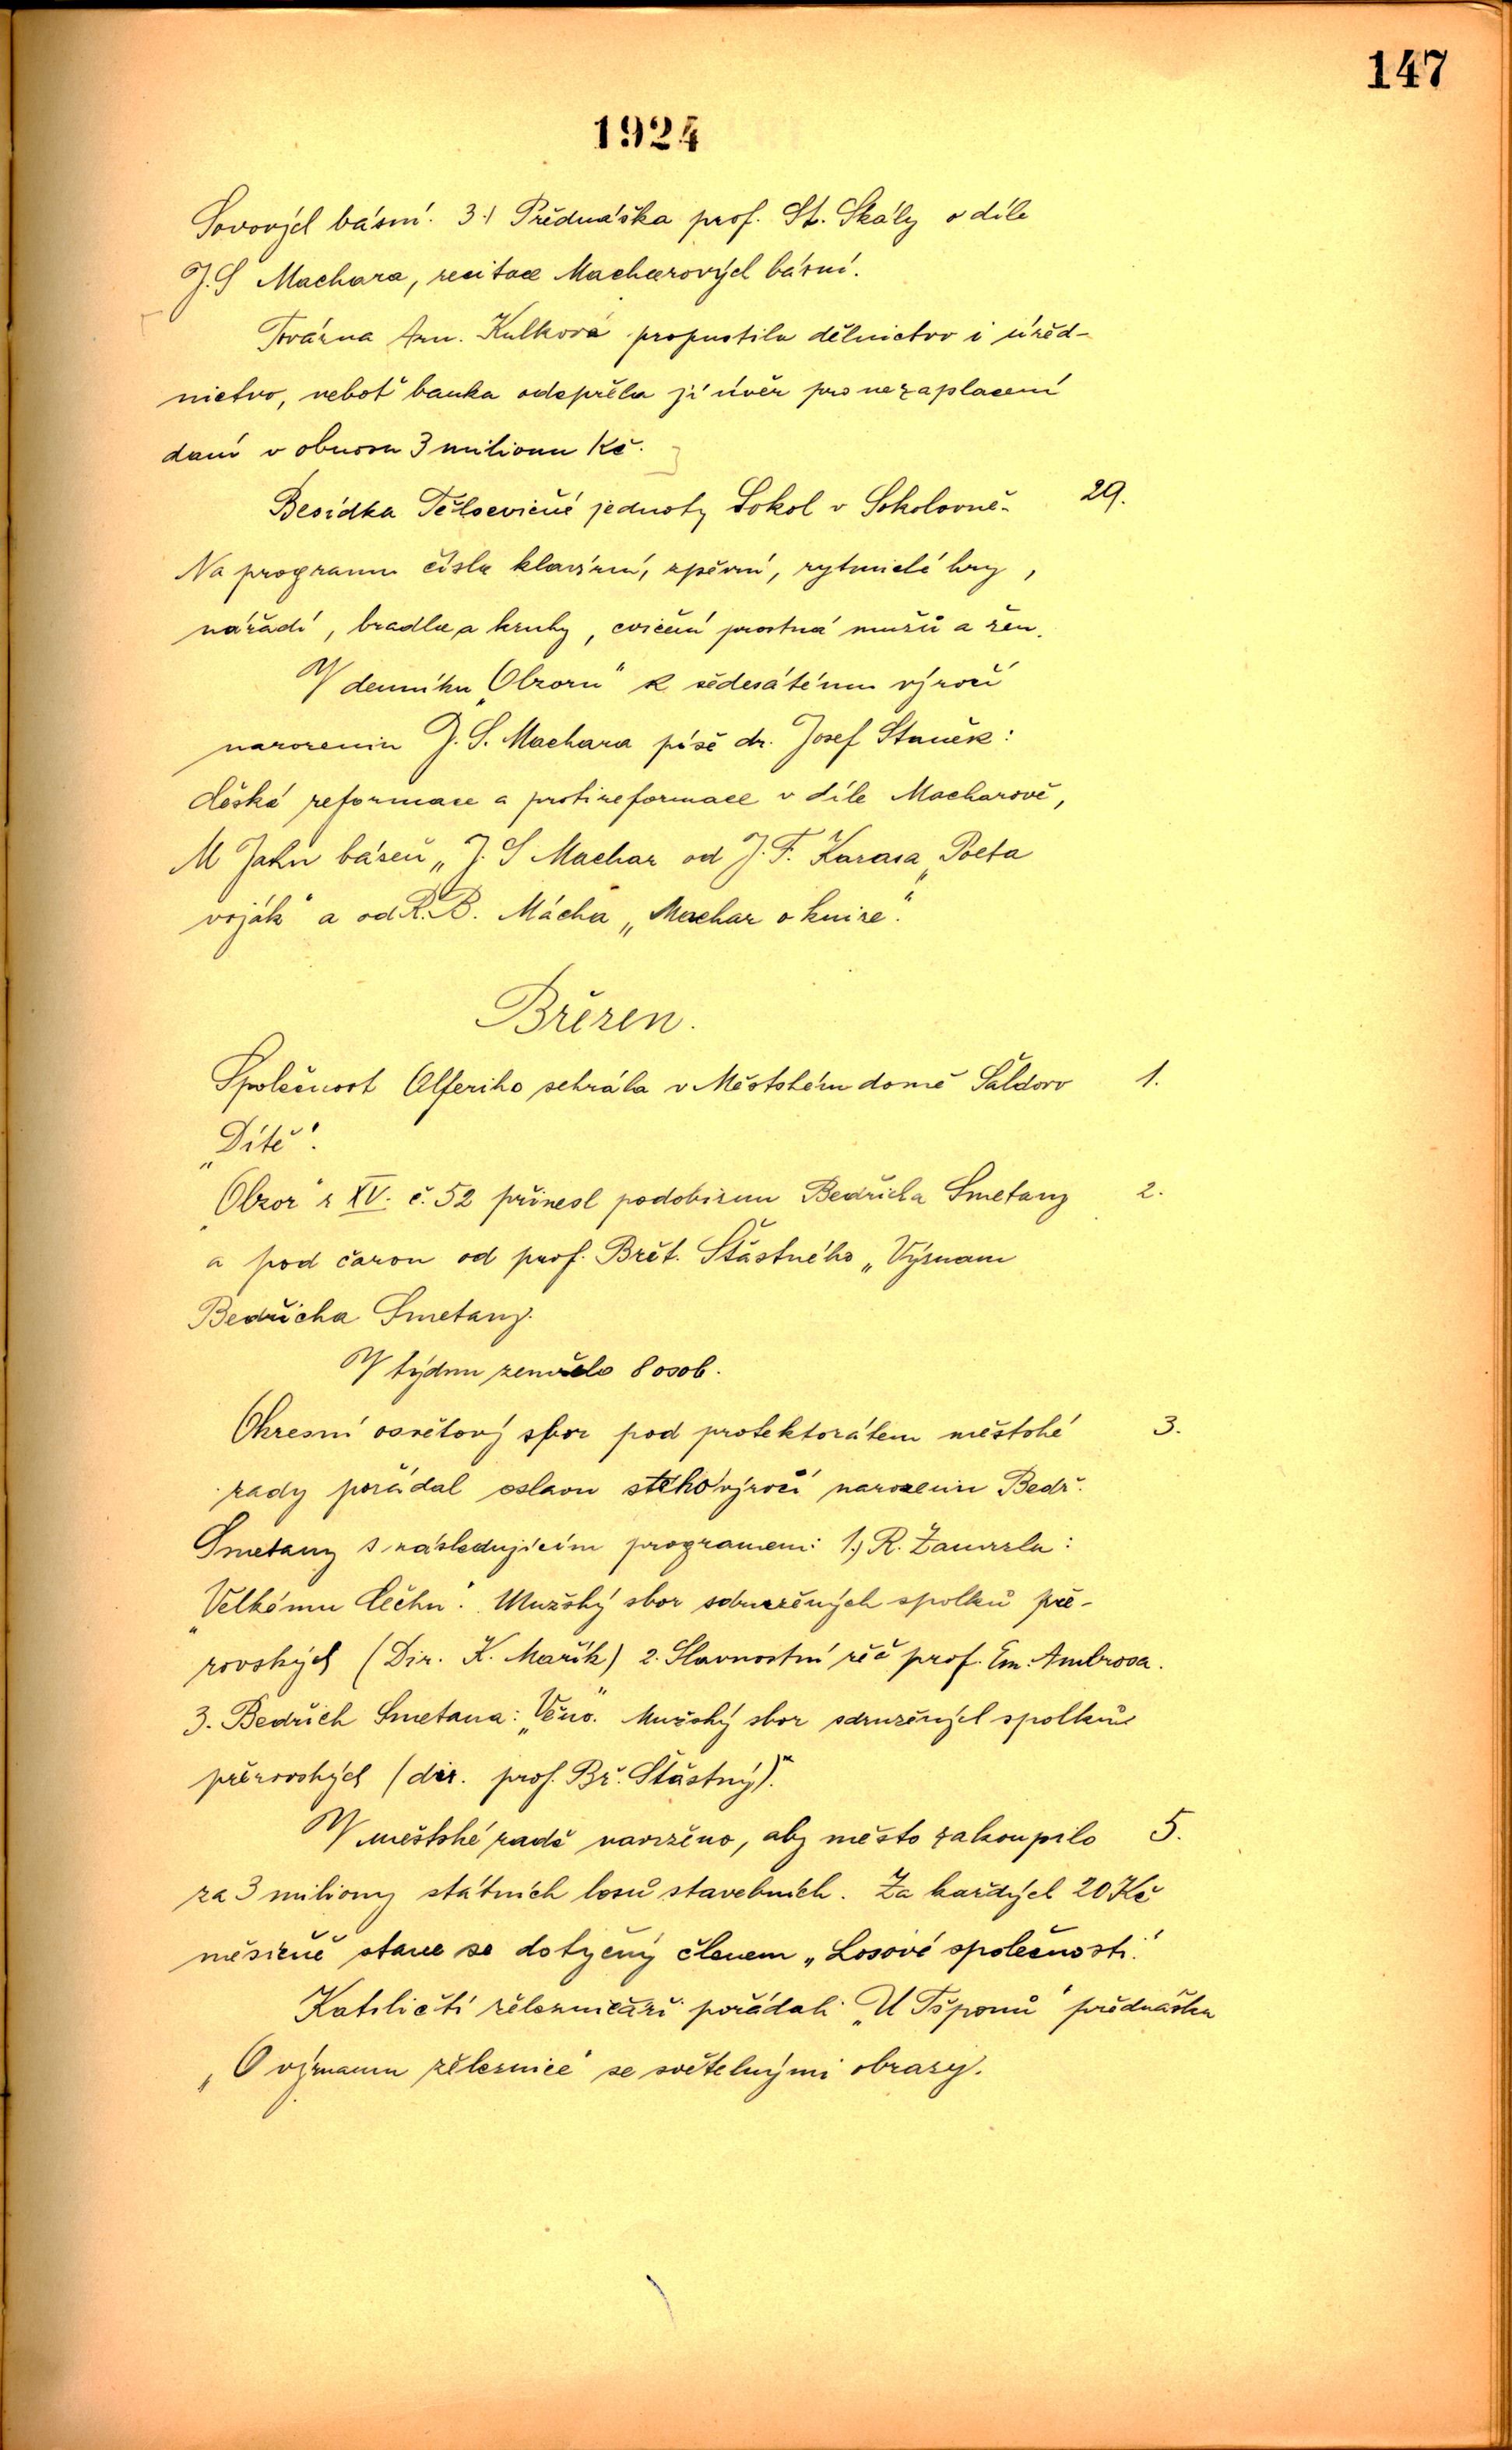 147
1924
Sovových básní. 3.) Přednáška prof. St. Skály o díle
J.S Machara, recitace Macharových básní.
Továrna Arn. Kulková propustila dělnictvo i úřed-
nictvo, neboť banka odepřela jí úvěr pro nezaplacení
daní v obnosu 3 milionu Kč.
Besídka Tělocvičné jednoty Sokol v Sokolovně. 29.
Na programu čísla klavírní, zpěvní, rytmické hry,
nářadí, bradla a kruhy, cvičení prostná mužů a žen.
V denníku „Obzoru" k šedesátému výročí
narozenin J. S. Machara píše dr. Josef Staněk:
Česká reformace a protireformace v díle Macharově,
M Jahn báseň „J. S Machar od J. F. Karasa „Poeta
voják" a od R. B. Mácha „Machar o knize".
Březen.
Společnost Alferiho sehrála v Městském domě Šaldovo 1.
„Dítě".
„Obzor" r XV. č. 52 přinesl podobiznu Bedřicha Smetany 2.
a pod čarou od prof. Břet. Šťastného „Význam
Bedřicha Smetany.
V týdnu zemřelo 8 osob.
Okresní osvětový sbor pod protektorátem městské 3.
rady pořádal oslavu stéhovýročí narozenin Bedř.
Smetany s následujícím programem: 1.) R. Zamrzla:
„Velkému Čechu". Mužský sbor sdružených spolků pře-
rovských (Dir. K. Mařík) 2. Slavnostní řeč prof. Em. Ambrosa.
3. Bedřich Smetana: „Věno." Mužský sbor sdružených spolků
přerovských (dir. prof. Bř. Šťastný).
V městské radě navrženo, aby město zakoupilo 5.
za 3 miliony státních losů stavebních. Za každých 20 Kč
měsíčně stane se dotyčný členem „Losové společnosti."
Katoličtí železničáři pořádali „U Tšponů" přednášku
„O významu železnice" se světelnými obrazy.